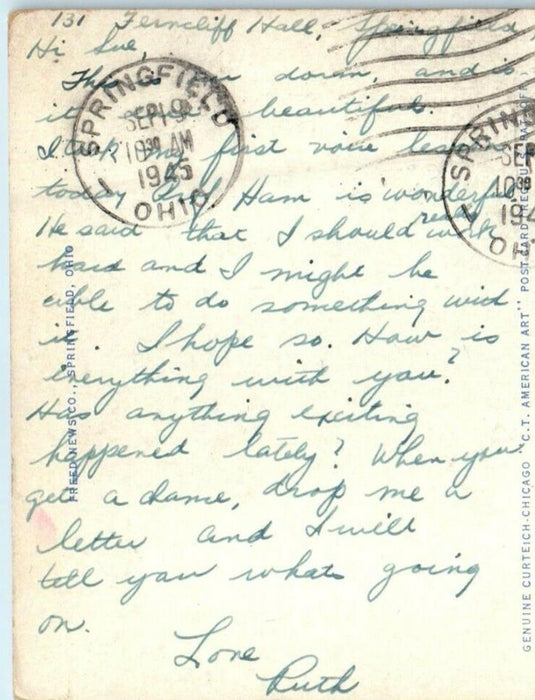 131 Ferncliff Hall, Springfield,
Hi Sue,
This is our dorm, and is
it beautiful.
I took my first voice lesson
today Prof Ham is wonderful
He said that I should really work
hard and I might be
able to do something wid
it. I hope so. How is
everything with you?
Has anything exciting
happened lately? When you
get a chance, drop me a
letter and I will
tell you whats going
on.
Love
Ruth
SPRINGFIELD
SEP 19
10 30 AM
1945
1
OHIO
SPRING
SEP
10 30
194
1
OH
FREED NEWS CO., SPRINGFIELD, OHIO
GENUINE CURTEICH-CHICAGO "C.T. AMERICAN ART" POST CARD (REG. U.S. PAT. OFF